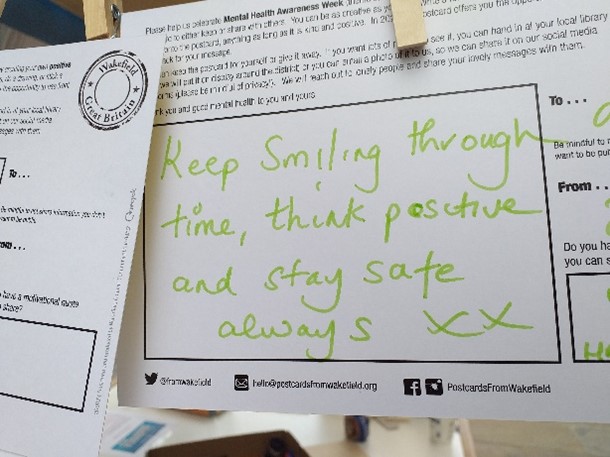 Please help us celebrate Mental Health Awareness Week
to either keep or share with others. You can be as creative as
onto the postcard, anything as long as it is kind and positive. In
for your message.
keep the postcard for yourself or give it away. If you want lots of see it, you can hand in at your local library
we will put it on display around the district, or you can email a photo of it to us, so we can share it on our social media
(please be mindful of privacy!). We will reach out to lonely people and share your lovely messages with them.
you and good mental health to you and yours
Keep Smiling through
time, think positive
and stay safe
always xx
@fromwakefield
hello@postcardsfromwakefield.org
PostcardsFromWakefield
To . . .
Be mindful to
want to be
From . .
Do you ha
you can s
Wakefield
Great Britain
your own positive
at your local library
on our social media
messages with them.
To . . .
have a motivational quote
share?